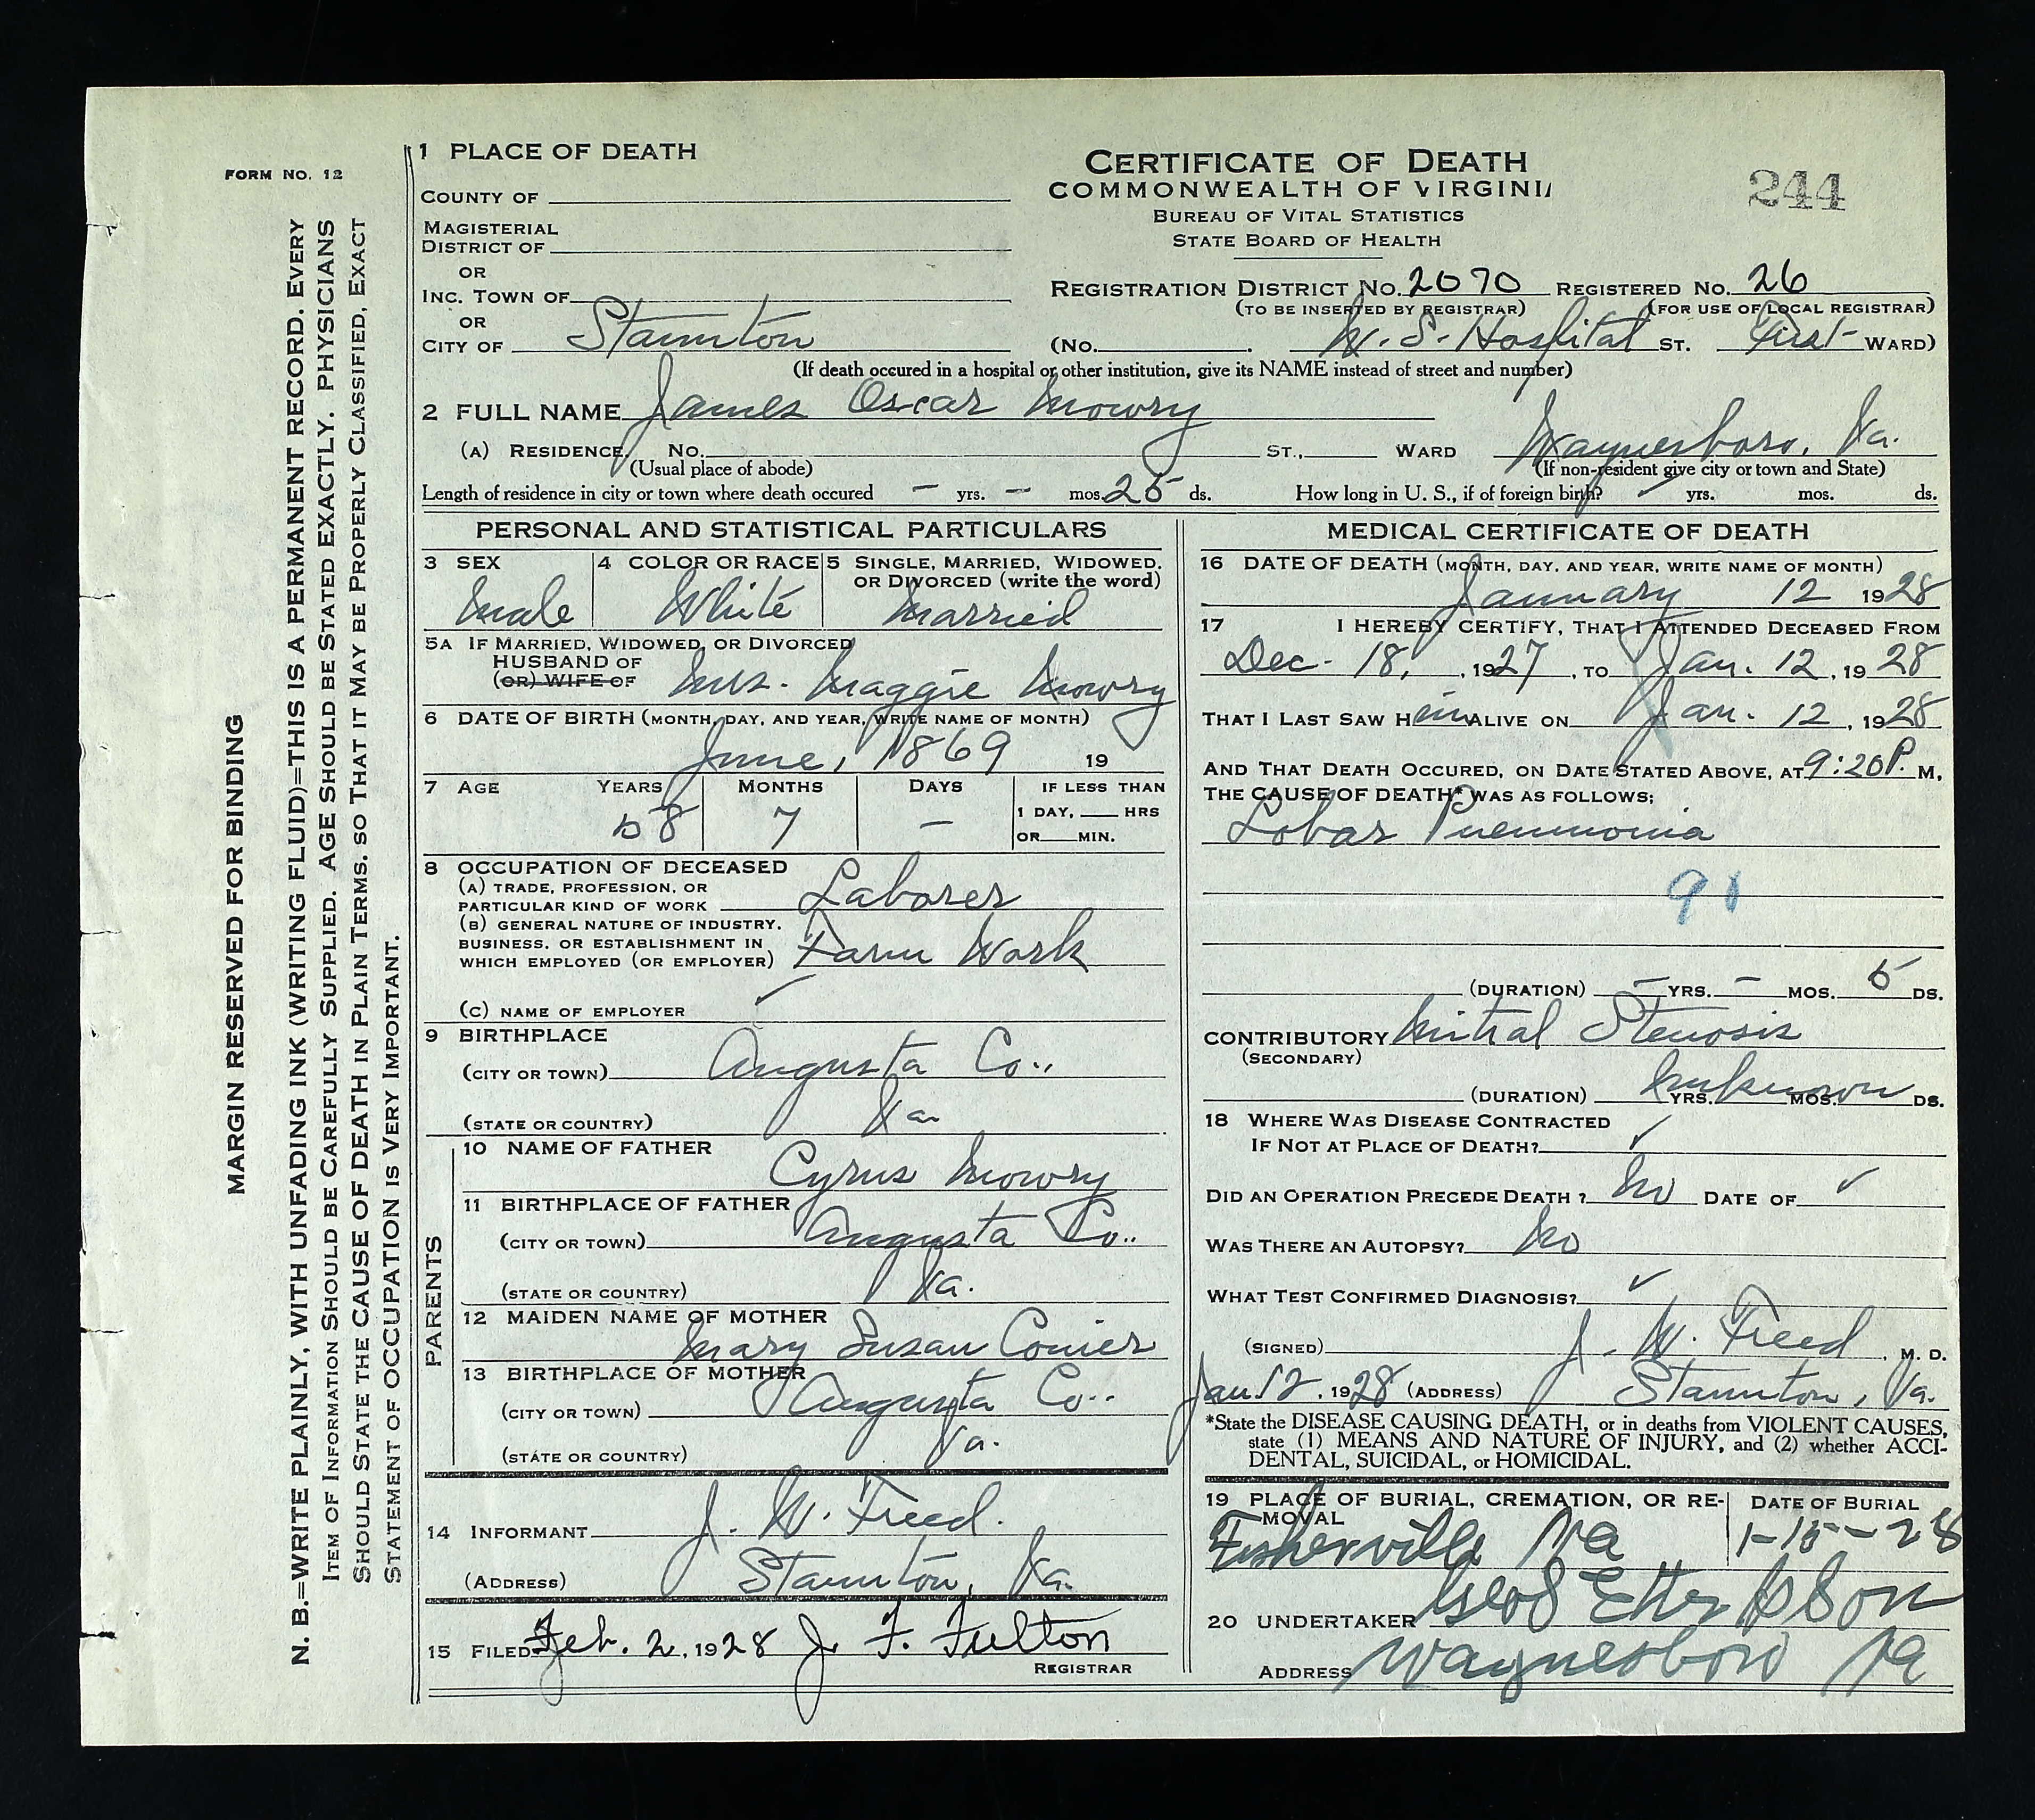 FORM NO. 12
MARGIN RESERVED FOR BINDING
N. B.=WRITE PLAINLY, WITH UNFADING INK (WRITING FLUID)=THIS IS A PERMANENT RECORD. EVERY
ITEM OF INFORMATION SHOULD BE CAREFULLY SUPPLIED. AGE SHOULD BE STATED EXACTLY. PHYSICIANS
SHOULD STATE THE CAUSE OF DEATH IN PLAIN TERMS. SO THAT IT MAY BE PROPERLY CLASSIFIED, EXACT
STATEMENT OF OCCUPATION IS VERY IMPORTANT.
1 PLACE OF DEATH
COUNTY OF
MAGISTERIAL
DISTRICT OF
OR
INC. TOWN OF
OR
CITY OF Staunton
CERTIFICATE OF DEATH
COMMONWEALTH OF VIRGINI
BUREAU OF VITAL STATISTICS
STATE BOARD OF HEALTH
244
REGISTRATION DISTRICT NO. 2070 REGISTERED NO. 26
(TO BE INSERTED BY REGISTRAR) (FOR USE OF LOCAL REGISTRAR)
(NO. W. S. Hospital ST. First WARD)
(If death occured in a hospital or other institution, give its NAME instead of street and number)
2 FULL NAME James Oscar Mowry
(A) RESIDENCE, NO. ST., WARD Waynesboro, Va.
(Usual place of abode) (If non-resident give city or town and State)
Length of residence in city or town where death occured - yrs. - mos. 25 ds. How long in U. S., if of foreign birth? yrs. mos. ds.
PERSONAL AND STATISTICAL PARTICULARS
3 SEX 4 COLOR OR RACE 5 SINGLE, MARRIED, WIDOWED,
OR DIVORCED (write the word)
Male White Married
5A IF MARRIED, WIDOWED, OR DIVORCED
HUSBAND OF
(OR) WIFE OF Mrs. Maggie Mowry
6 DATE OF BIRTH (MONTH, DAY, AND YEAR, WRITE NAME OF MONTH)
June, 1869 19
7 AGE YEARS MONTHS DAYS IF LESS THAN
1 DAY, HRS
OR MIN.
58 7 -
8 OCCUPATION OF DECEASED
(A) TRADE, PROFESSION, OR
PARTICULAR KIND OF WORK Laborer
(B) GENERAL NATURE OF INDUSTRY.
BUSINESS. OR ESTABLISHMENT IN
WHICH EMPLOYED (OR EMPLOYER) Farm Work
(C) NAME OF EMPLOYER ✓
9 BIRTHPLACE
(CITY OR TOWN) Augusta Co.,
(STATE OR COUNTRY) Va
PARENTS
10 NAME OF FATHER
Cyrus Mowry
11 BIRTHPLACE OF FATHER
(CITY OR TOWN) Augusta Co..
(STATE OR COUNTRY) Va.
12 MAIDEN NAME OF MOTHER
Mary Susan
13 BIRTHPLACE OF MOTHER
(CITY OR TOWN) Augusta Co..
(STATE OR COUNTRY) Va.
14 INFORMANT J. W. Freed.
(ADDRESS) Staunton, Va.
15 FILED Feb. 2, 1928 J. F. Fulton
REGISTRAR
MEDICAL CERTIFICATE OF DEATH
16 DATE OF DEATH (MONTH, DAY, AND YEAR, WRITE NAME OF MONTH)
January 12 1928
17 I HEREBY CERTIFY, THAT I ATTENDED DECEASED FROM
Dec. 18, , 1927, TO Jan. 12, 1928
THAT I LAST SAW Him ALIVE ON Jan. 12, 1928
AND THAT DEATH OCCURED, ON DATE STATED ABOVE, AT 9:20 P. M,
THE CAUSE OF DEATH* WAS AS FOLLOWS;
Lobar Pneumonia
(DURATION) - YRS. - MOS. 5 DS.
CONTRIBUTORY Mitral Stenosis
(SECONDARY)
(DURATION) Unknown YRS. MOS. DS.
18 WHERE WAS DISEASE CONTRACTED
IF NOT AT PLACE OF DEATH? ✓
DID AN OPERATION PRECEDE DEATH ? No DATE OF ✓
WAS THERE AN AUTOPSY? No
WHAT TEST CONFIRMED DIAGNOSIS? ✓
(SIGNED) J. W. Freed, M. D.
Jan 12, 1928 (ADDRESS) Staunton, Va.
*State the DISEASE CAUSING DEATH, or in deaths from VIOLENT CAUSES,
state (1) MEANS AND NATURE OF INJURY, and (2) whether ACCI-
DENTAL, SUICIDAL, or HOMICIDAL.
19 PLACE OF BURIAL, CREMATION, OR RE-
MOVAL DATE OF BURIAL
Fisherville Va 1-15-28
20 UNDERTAKER Etter & Son
ADDRESS Waynesboro Va